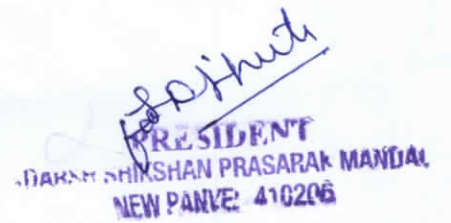 PRESIDENT
SHIKSHAN PRASARAK MANDAL
NEW PANVEL 410206